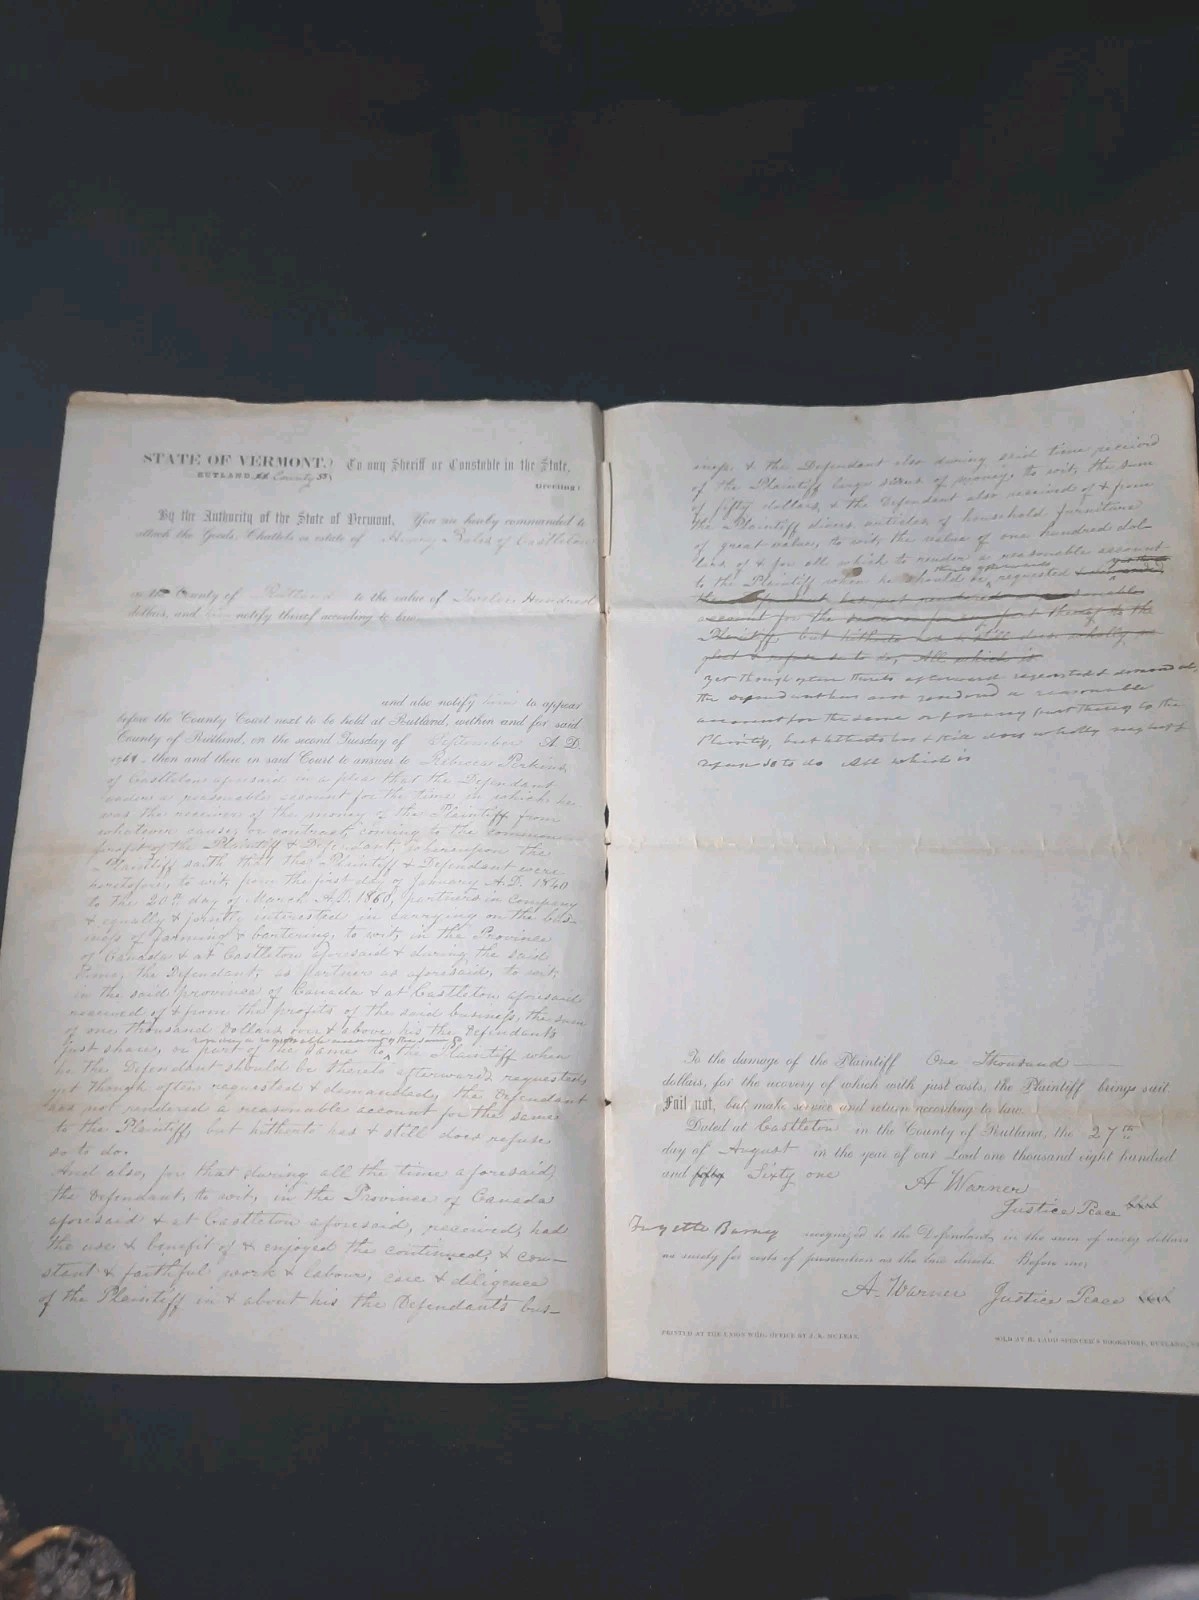 STATE OF VERMONT, } To any Sheriff or Constable in the State,
RUTLAND County SS } Greeting:
By the Authority of the State of Vermont. You are hereby commanded to
attach the Goods, Chattels or estate of Henry of Castleton
in the County of Rutland to the value of Twelve Hundred
dollars, and him notify thereof according to law.
and also notify him to appear
before the County Court next to be held at Rutland, within and for said
County of Rutland, on the second Tuesday of September A. D.
1861, then and there in said Court to answer to Rebecca Perkins
of Castleton aforesaid in a plea that the Defendant
render a reasonable account for the time in which he
was the receiver of the money of the Plaintiff from
whatever cause, or contract, coming to the common
profit of the Plaintiff & Defendant, whereupon the
Plaintiff saith that the Plaintiff & Defendant were
heretofore, to wit, from the first day of January A.D. 1840
to the 20th day of March A.D. 1860, partners in company
& equally & jointly interested in carrying on the bus-
iness of farming & bartering, to wit, in the Province
of Canada & at Castleton aforesaid & during the said
time, the Defendant, as partner as aforesaid, to wit,
in the said province of Canada & at Castleton aforesaid
received of & from the profits of the said business, the sum
of one thousand Dollars over & above his the Defendants
just share, or part of the same to
render a reasonable account of the same
the Plaintiff when
he the Defendant should be thereto afterwards requested,
yet though often requested & demanded, the Defendant
has not rendered a reasonable account for the same
to the Plaintiff, but hitherto has & still does refuse
so to do.
And also, for that during all the time aforesaid,
the Defendant, to wit, in the Province of Canada
aforesaid & at Castleton aforesaid, received, had
the use & benefit of & enjoyed the continued, & con-
stant & faithful work & labour, care & diligence
of the Plaintiff in & about his the Defendant's bus-
iness, & the Defendant also during said time received
of the Plaintiff large sums of money, to wit, the sum
of fifty dollars, & the Defendant also received of & from
the Plaintiff divers articles of household furniture
of great value, to wit, the value of one hundred dol-
lars of & for all which to render a reasonable account
to the Plaintiff when he should be thereto afterwards requested
the Defendant has not rendered
account for the same or for any part thereof to the
Plaintiff, but hitherto has & still does wholly ne-
glect & refuse so to do, All which is
yet though often thereto afterward requested & demanded,
the defendant has not rendered a reasonable
account for the same or for any part thereof to the
Plaintiff, but hitherto has & still does wholly neglect &
refuse so to do All which is
To the damage of the Plaintiff One Thousand
dollars, for the recovery of which with just costs, the Plaintiff brings suit.
Fail not, but make service and return according to law.
Dated at Castleton in the County of Rutland, the 27th
day of August in the year of our Lord one thousand eight hundred
and fifty Sixty one
A Warner
Justice Peace
Fayette Barney recognized to the Defendant, in the sum of dollars
as surety for costs of prosecution as the law directs. Before me,
A. Warner Justice Peace
PRINTED AT THE UNION WHIG OFFICE BY J. K. McLEAN.
SOLD AT H. LADD SPENCER'S BOOKSTORE, RUTLAND, VT